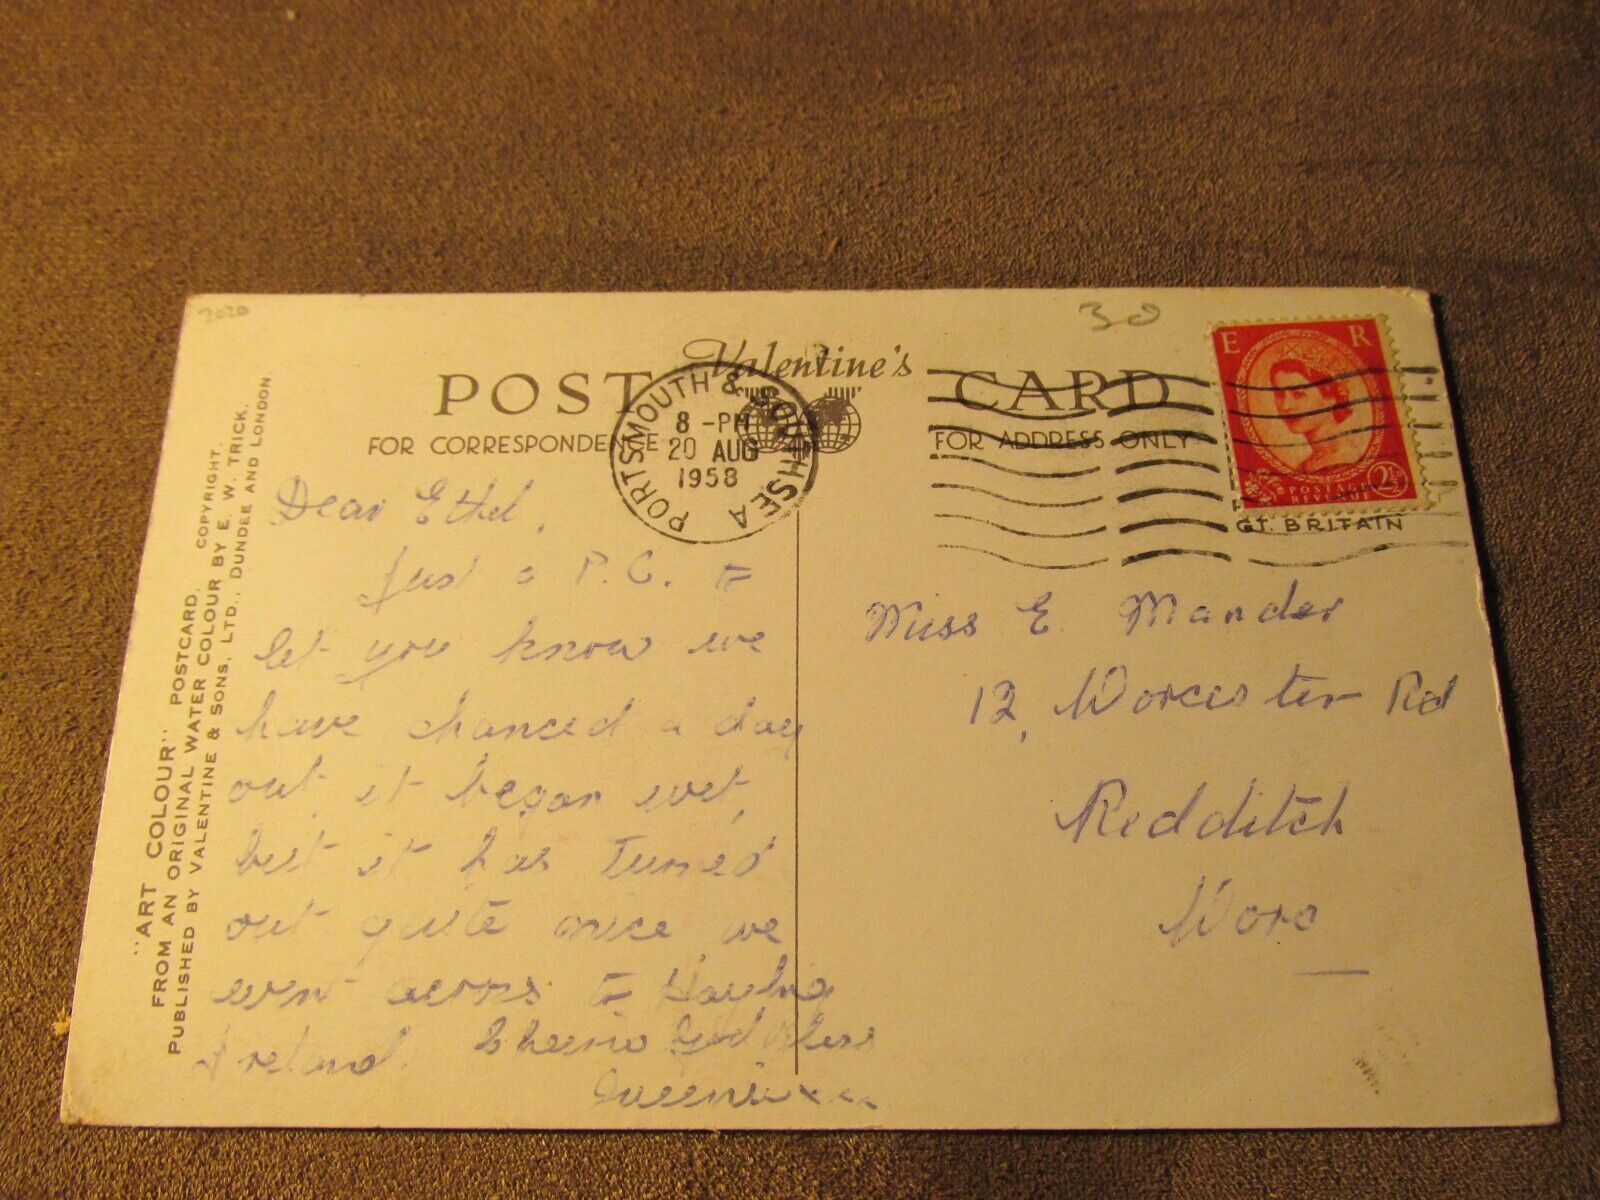 2020
30
Valentine's
POST CARD
FOR CORRESPONDENCE
FOR ADDRESS ONLY
PORTSMOUTH & SOUTHSEA
8 - PM
20 AUG
1958
E R
POSTAGE
REVENUE
2½
GT. BRITAIN
"ART COLOUR" POSTCARD. COPYRIGHT.
FROM AN ORIGINAL WATER COLOUR BY E. W. TRICK.
PUBLISHED BY VALENTINE & SONS, LTD., DUNDEE AND LONDON.
Dear Ethel,
Just a P.C. to
let you know we
have chanced a day
out, it began wet,
but it has turned
out quite nice we
went across to Hayling
Ireland. Cheerio God Bless
Queenie x x x
Miss E. Mander
12, Worcester Rd
Redditch
Worc